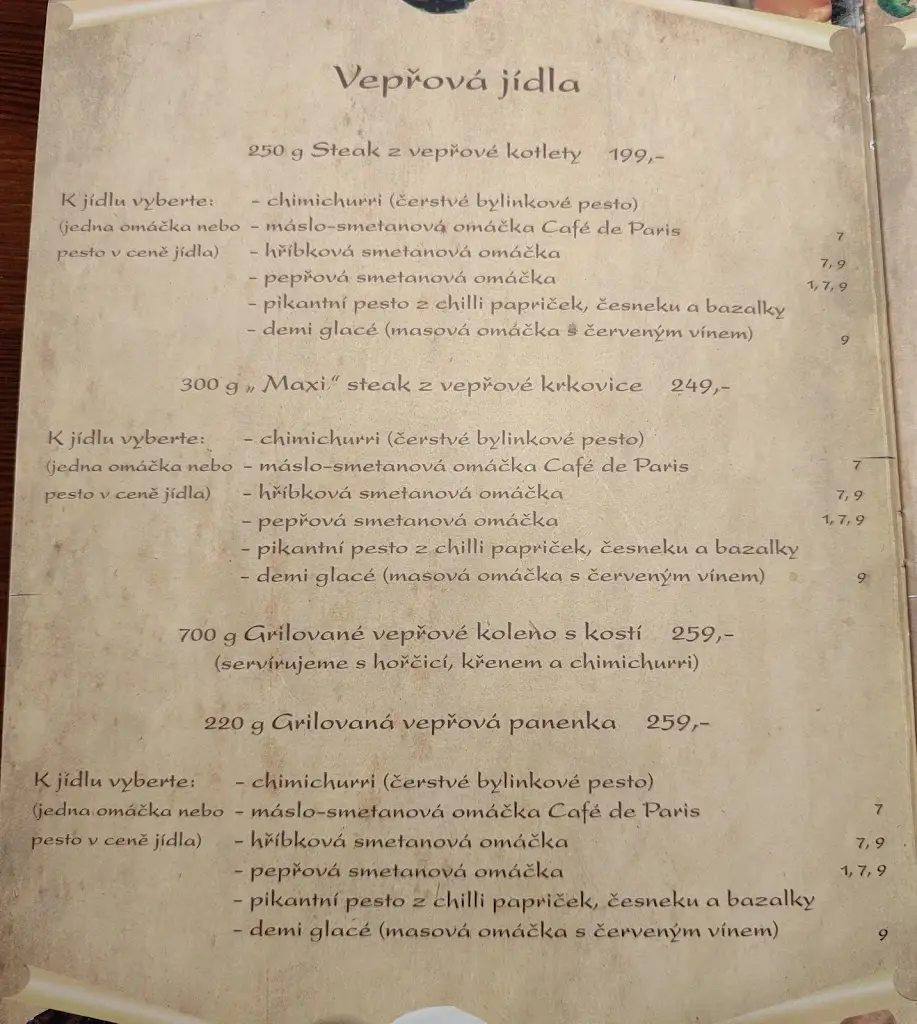 Vepřová jídla
250 g Steak z vepřové kotlety 199,-
K jídlu vyberte: - chimichurri (čerstvé bylinkové pesto)
(jedna omáčka nebo - máslo-smetanová omáčka Café de Paris 7
pesto v ceně jídla) - hříbková smetanová omáčka 7, 9
- pepřová smetanová omáčka 1, 7, 9
- pikantní pesto z chilli papriček, česneku a bazalky
- demi glacé (masová omáčka s červeným vínem) 9
300 g „ Maxi “ steak z vepřové krkovice 249,-
K jídlu vyberte: - chimichurri (čerstvé bylinkové pesto)
(jedna omáčka nebo - máslo-smetanová omáčka Café de Paris 7
pesto v ceně jídla) - hříbková smetanová omáčka 7, 9
- pepřová smetanová omáčka 1, 7, 9
- pikantní pesto z chilli papriček, česneku a bazalky
- demi glacé (masová omáčka s červeným vínem) 9
700 g Grilované vepřové koleno s kostí 259,-
(servírujeme s hořčicí, křenem a chimichurri)
220 g Grilovaná vepřová panenka 259,-
K jídlu vyberte: - chimichurri (čerstvé bylinkové pesto)
(jedna omáčka nebo - máslo-smetanová omáčka Café de Paris 7
pesto v ceně jídla) - hříbková smetanová omáčka 7, 9
- pepřová smetanová omáčka 1, 7, 9
- pikantní pesto z chilli papriček, česneku a bazalky
- demi glacé (masová omáčka s červeným vínem) 9